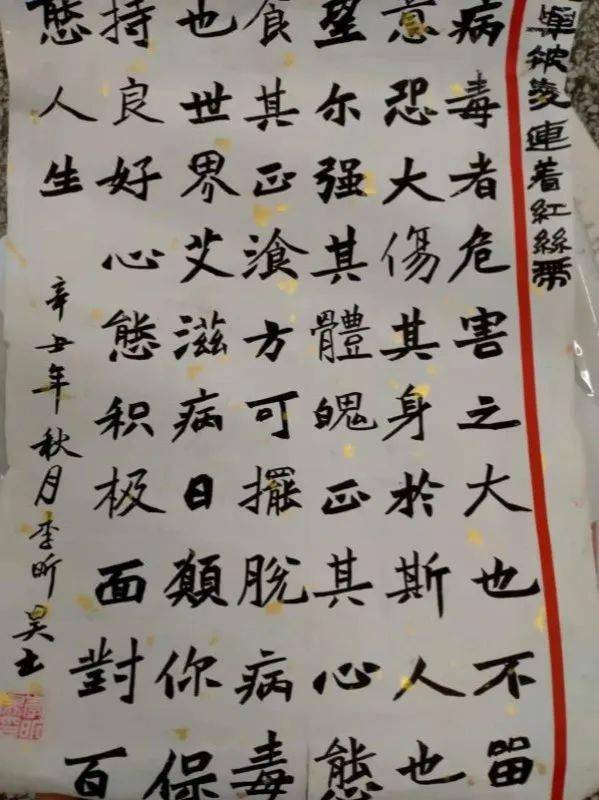 連着紅絲帶
病毒者危害之大也不留
意恐大傷其身於斯人也
望尔强其體魄正其心態
食其正湌方可擺脱病毒
也世界艾滋病日願你保
持良好心態积极面對百
態人生
辛丑年秋月李昕昊书